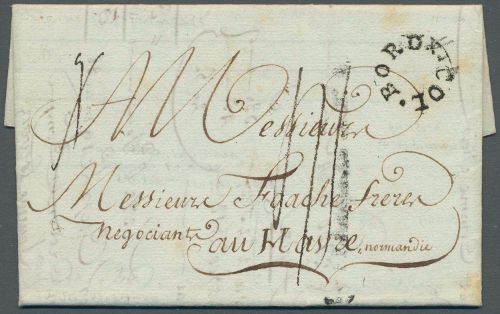 BORDX COL
A Messieurs
Messieurs Foache freres
negociants au Havre, normandie